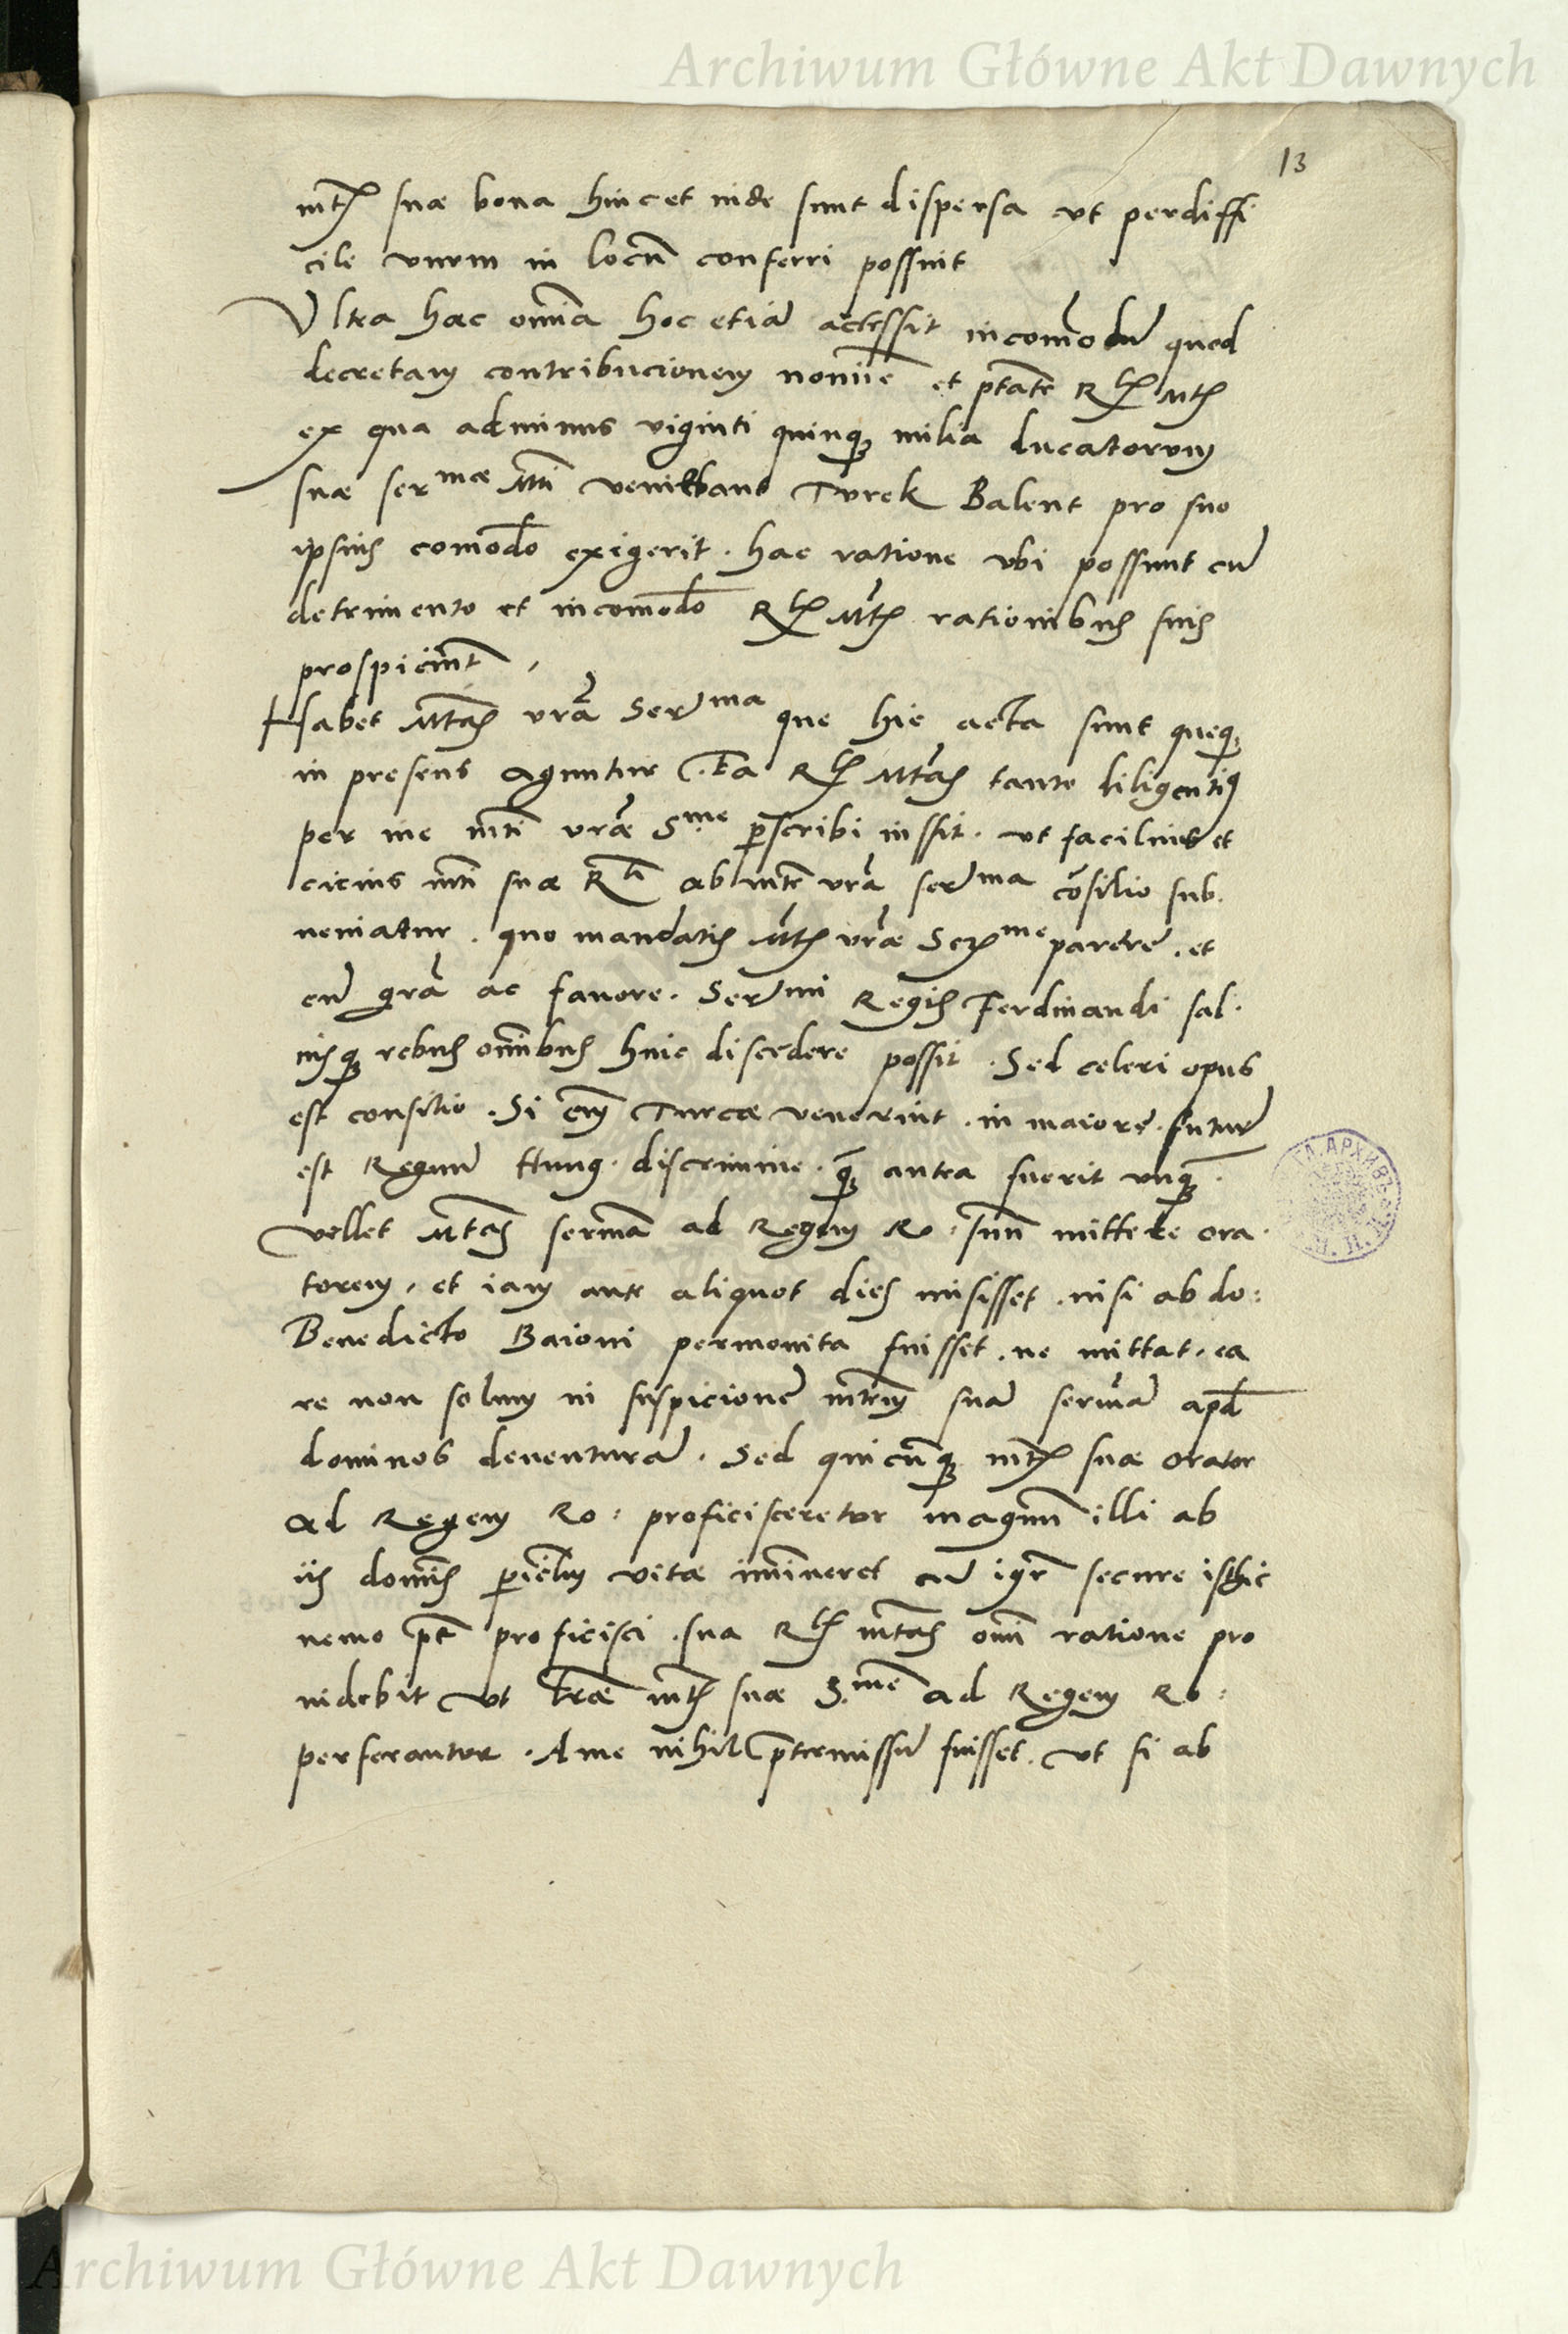 Archiwum Główne Akt Dawnych
13
mtis suæ bona hinc et inde sunt dispersa ut perdiffi
cile unum in locū conferri possint
Ultra hæc om̄ia hoc etiā accessit incom̄odū quod
decretam contribucionem nomīe et ptāte Rlis Mtis
ex qua adminus viginti quinq₃ milia ducatorum
suæ sermæ Mti venibant Turek Balent pro suo
ipsius comodo exigerit . hac ratione ubi possunt cū
detrimento et incomodo Rlis Mtis rationibus suis
prospiciūt .
Habet Mtas vrā Serma que hic acta sunt queq₃
in presens aguntur . Ea Rlis Mtas tanto diligentius
per me mti vræ Sme pscribi iussit . ut facilius et
cicius mti suæ Rli ab mte vrā serma cōsilio sub.
veniatur . quo mandatis Mtis vræ Serme parere . et
cū grā ac favore . Sermi Regis Ferdinandi sal.
visq₃ rebus om̄ibus hinc discedere possit . Sed celeri opus
est consilio . Si em̄ Turcæ venerint . in maiore . futurū
est Regnū Hung . discrimine . q̄₃ antea fuerit unq̄₃ .
Vellet Mtas sermā ad Regem Ro : suū mittere ora.
torem , et iam ante aliquot dies misisset . nisi ab do:
Benedicto Baioni permonita fuisset . ne mittat . ea
re non solum in suspicionē mtem suā sermā apd
dominos deventurā . Sed quicūq₃ mtis suæ orator
ad Regem Ro : proficisceretur magnū illi ab
iis domīs piclm vitæ im̄ineret cū igr secure isthic
nemo pt proficisci . sua Rlis mtas om̄i ratione pro
videbit ut lræ mtis suæ S.me ad Regem Ro :
perferantur . A me nihil ptermissū fuisset . ut si ab
Archiwum Główne Akt Dawnych